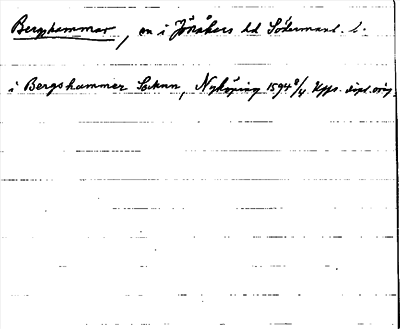 Bergshammar, sn i Jönåkers hd Södermanl. l.
i Bergshammer Soknn, Nyköping 1594 8/4 Kgs. dipl. orig.